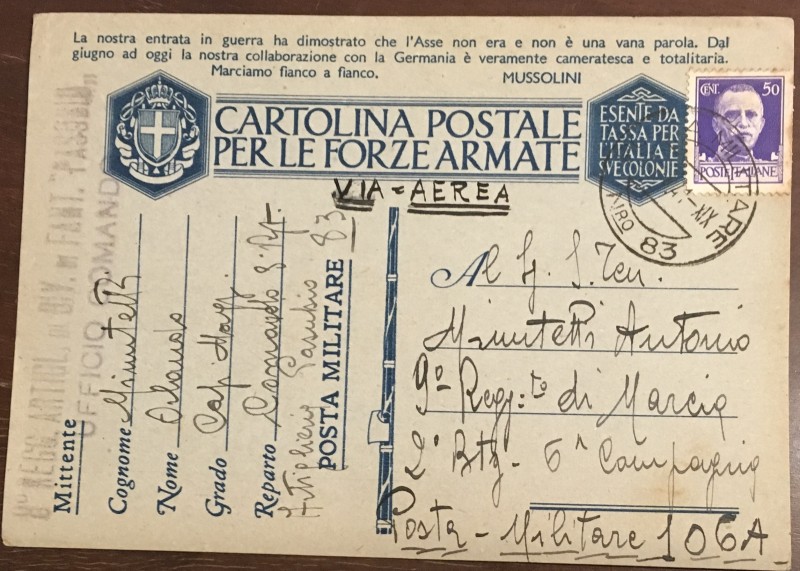 La nostra entrata in guerra ha dimostrato che l'Asse non era e non è una vana parola. Dal
giugno ad oggi la nostra collaborazione con la Germania è veramente cameratesca e totalitaria.
Marciamo fianco a fianco. MUSSOLINI
CARTOLINA POSTALE
PER LE FORZE ARMATE
ESENTE DA
TASSA PER
L'ITALIA E
SVE COLONIE
CENT. 50
POSTE ITALIANE
83
XIX
VIA = AEREA
8° REGG. ARTIGL. DIV. FANT. "PASUBIO"
UFFICIO COMANDO
Mittente
Cognome Minutetti
Nome Orlando
Grado Cap. Magg.
Reparto Comando 8° Rgt.
Artiglieria Pasubio
POSTA MILITARE 83
Al S. Ten.
Minutetti Antonio
9° Regg:to di Marcia
2° Btg - 6ª Compagnia
Posta - Militare 106A